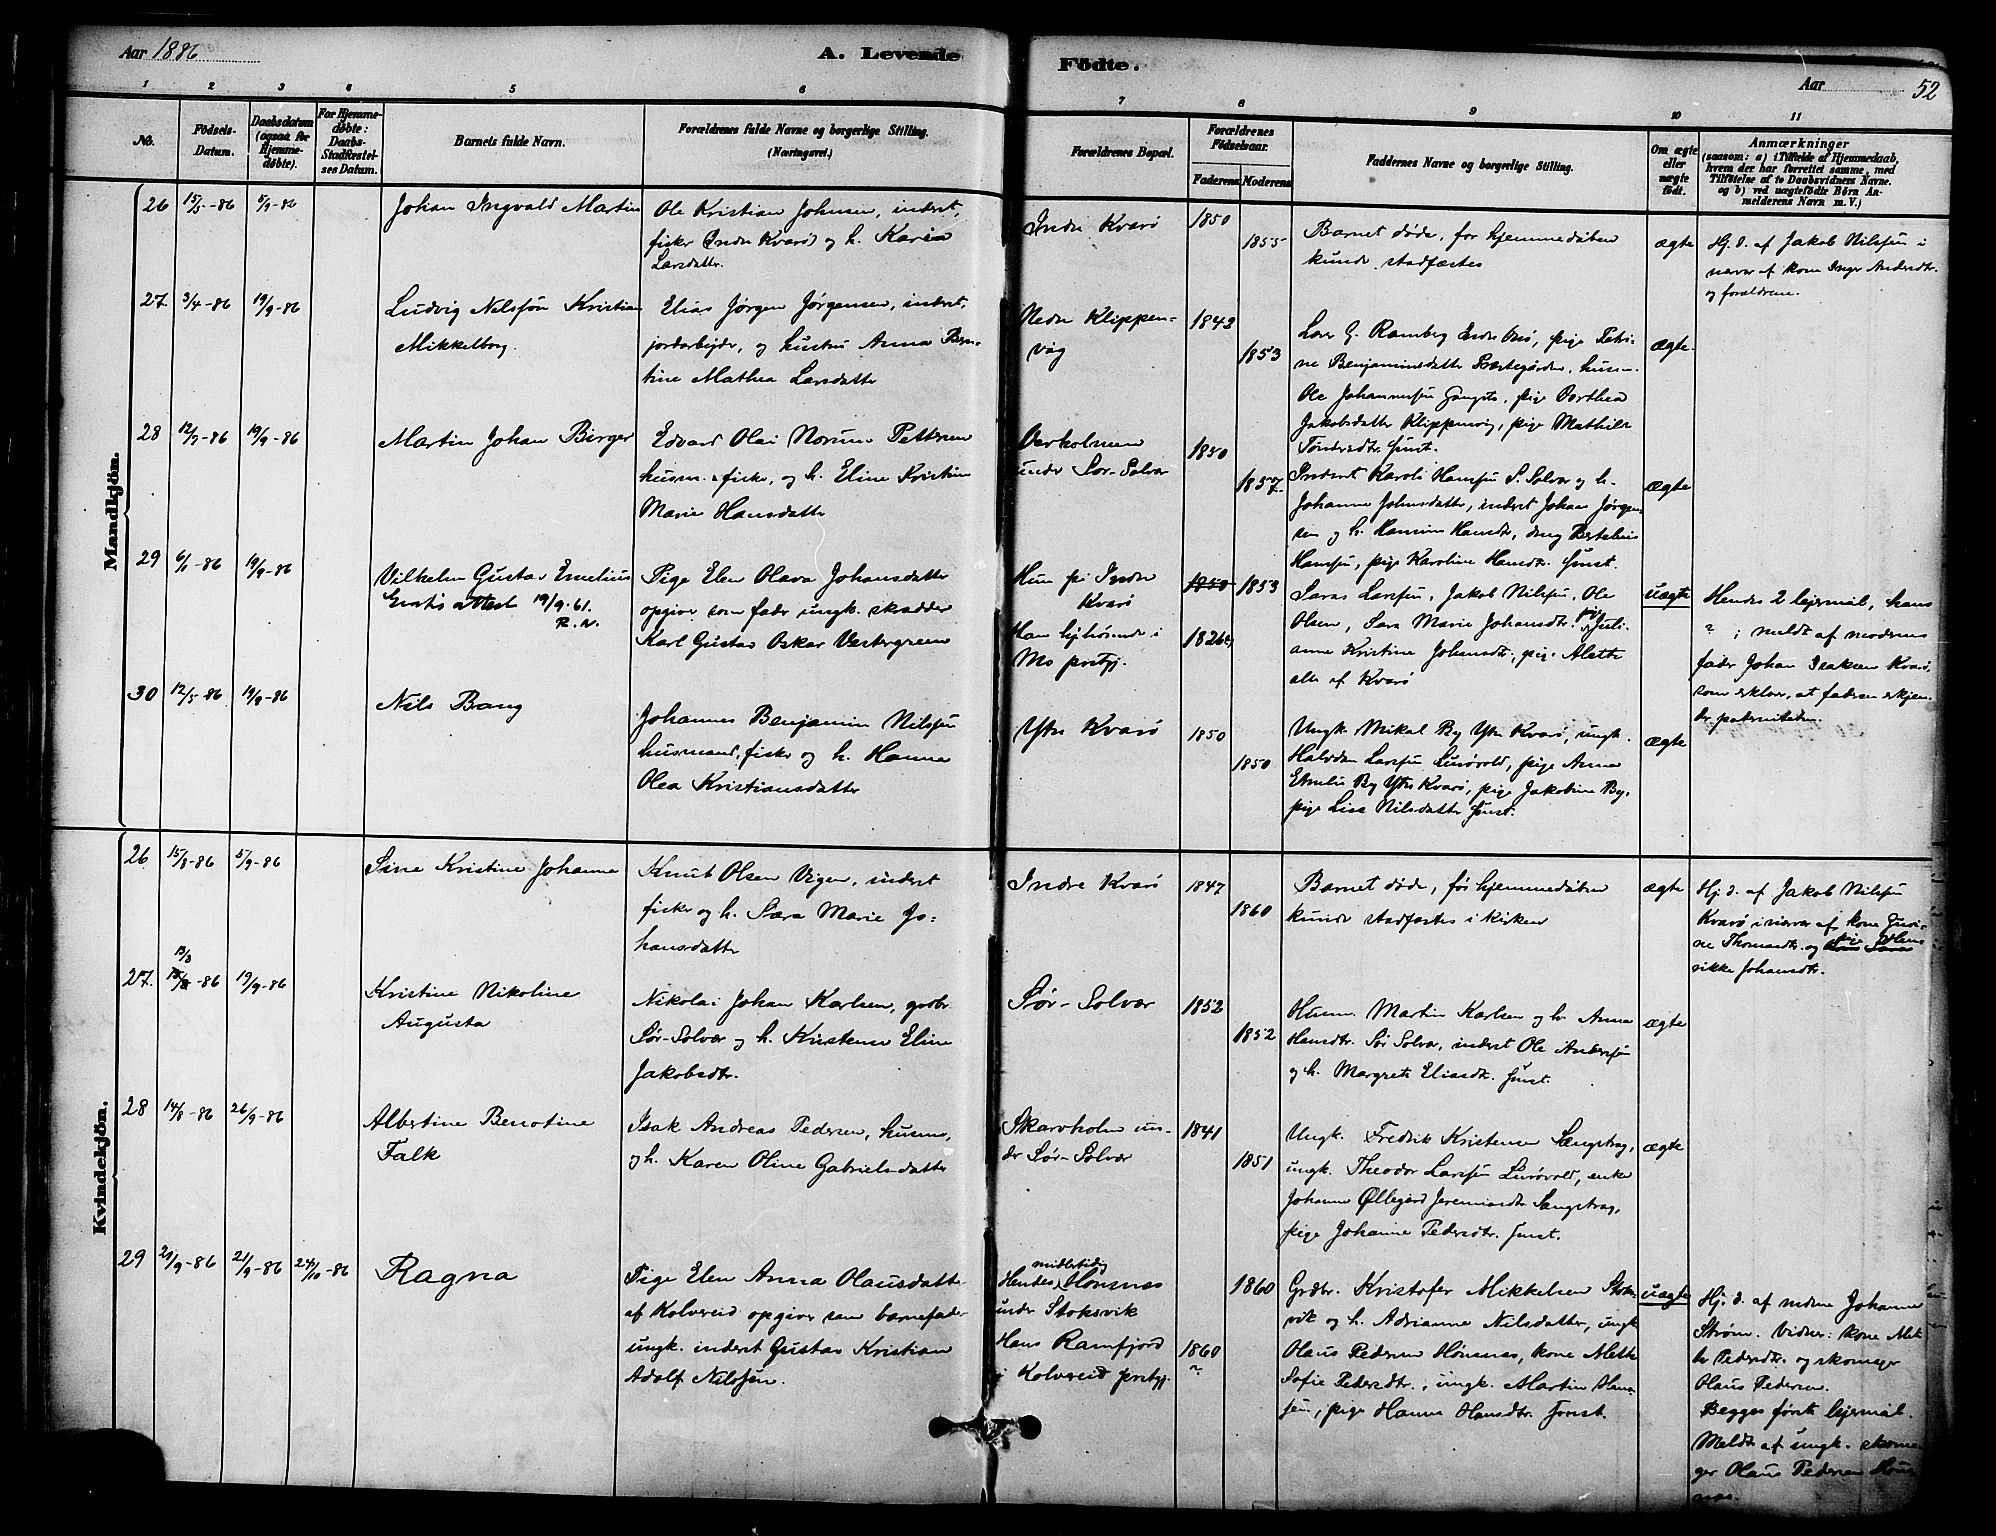 Aar 1886
A. Levende
Födte.
Aar
52
1 2 3 4 5 6 7 8 9 10 11
No.
Födsels-Datum.
Daabsdatum (ogsaa for Hjemmedøbte).
For Hjemmedøbte: Daabs-Stadfæstelses Datum.
Barnets fulde Navn.
Forældrenes fulde Navne og borgerlige Stilling. (Næringsvei.)
Forældrenes Bopæl.
Forældrenes Födselsaar.
Faderens. Moderens.
Faddernes Navne og borgerlige Stilling.
Om ægte eller uægte födt.
Anmærkninger
(saasom: a) i Tilfælde af Hjemmedaab,
hvem der har forrettet samme, med
Tilføielse af to Daabsvidners Navne.
og b) ved uægtefödte Börn Anmelderens Navn m. V.)
Mandkjön.
26 15/5-86 5/9-86
Johan Ingvald Martin
Ole Kristian Johnsen, inderst,
fisker Indre Kvarø og h. Karen
Larsdatter.
Indre Kvarø
1850
1855
Barnet døde, før hjemmedåben
kunde stadfæstes
ægte
Hj. d. af Jakob Nilssøn i
nærvær af kone Inger Andersdtr.
og forældrene.
27. 3/4-86 19/9-86
Ludvig Nilssøn Kristian
Mikkelborg.
Elias Jørgen Jørgensen, inderst,
jordarbejder, og hustru Anna Bern-
tine Mathea Larsdatter
Nedre Klippen-
våg
1843
1853
Lars G. Ramberg Indre Onø, pige Petri-
ne Benjaminsdatter Præstegården, husm.
Ole Johannessøn, pige Dorthea
Jakobsdatter Klippenvåg, pige Mathilde
Tøndersdtr. smst.
ægte.
28 12/7-86 19/9-86
Martin Johan Birger
Edvard Olai Norum Pettersen
husm. & fisker, og h. Eline Kristine
Marie Hansdatter
under Sør-Solvær
1850
1857.
Inderst Karoli Hanssøn S. Solvær og h.
Johanne Johnsdatter, inderst Johan Jørgen-
sen og h. Hansine Hansdtr., dreng Bertheus
Hanssøn, pige Karoline Hansdtr. smst.
ægte
29 6/1-86 19/9-86
Vilhelm Gustav Emelius
Gratis attest 19/9-61.
R. N.
Pige Elen Olava Johansdatter
opgiver som fader ungk. skrædder
Karl Gustav Oskar Vestergreen
Hun på Indre
Kvarø
Han lejhørende i
Mo prstgj.
1850 1853
1826
Saras Larssøn, Jakob Nilssøn, Ole
Olsen, Sara Marie Johansdtr. pige Juli-
anne Kristine Johansdtr., pige Alette
alle af Kvarø
uægte
Hendes 2 lejermål, hans
? ; meldt af moderens
fader Johan Isaksen Kvarø,
som erklærer, at faderen erkjen-
der paterniteten.
30 12/5-86 19/9-86
Nils Bang
Johannes Benjamin Nilssøn
husmand, fisker og h. Hanna
Olea Kristiansdatter
Ytre Kvarø
1850
1850
Ungk. Mikal By Ytre Kvarø, ungk.
Halvdan Larssøn Lurøvold, pige Anna
Emelie By Ytre Kvarø, pige Jakobine By,
pige Lise Nilsdatter smst.
ægte
Kvindekjön.
26 15/8-86 5/9-86
Sine Kristine Johanna
Knut Olsen Vigen, inderst
fisker og h. Sara Marie Jo-
hansdatter
Indre Kvarø
1847
1860
Barnet døde, før hjemmedåben
kunde stadfæstes i kirken
ægte
Hj. d. af Jakob Nilssøn
Kvarø i nærvær af kone Guri-
ne Thomasdtr. og pige Hen-
rikke Johansdtr.
27. 13/3-86 19/9-86
Kristine Nikoline
Augusta
Nikolai Johan Karlsen, grdbr.
Sør-Solvær og h. Kirstense Eline
Jakobsdtr.
Sør-Solvær
1852
1852
Husm. Martin Karlsen og h. Anna
Hansdtr. Sør Solvær, inderst Ole Anderssøn
og h. Margrete Eliasdtr. smst.
ægte
28 14/8-86 26/9-86
Albertine Benotine
Falk
Isak Andreas Pedersen, husm.,
og h. Karen Oline Gabrielsdatter
Skarvholm un-
der Sør-Solvær
1841
1851
Ungk. Fredrik Kristensen Sengstrag,
ungk. Theodor Larssøn Lurøvold, enke
Johanne Øllegård Jeremiasdtr. Sengstrag,
pige Johanne Pedersdtr. smst.
ægte
29 21/9-86 21/9-86 24/10-86
Ragna
Pige Elen Anna Olausdatter
af Kolvereid opgiver som barnefader
ungk. inderst Gustav Kristian
Adolf Nilssøn.
midlertidig
Hendes Hønsnes
under Stoksvik
Hans Ramfjord
i Kolvereid prstgj.
1860
1860
?
Grdbr. Kristofer Mikkelsen Stoks-
vik og h. Adrianne Nilsdatter, ungk.
Olaus Pedersen Hønsnes, kone Mette
Sofie Pedersdtr., ungk. Martin Hans-
søn, pige Hanna Hansdtr. smst.
uægte
Hj. d. af madme Johanne
Strøm. Vidner: kone Met-
te Pedersdtr. og skomager
Olaus Pedersen.
Begges første lejermål.
Meldt af ungk. skoma-
ger Olaus Pedersen Høns-
nes.